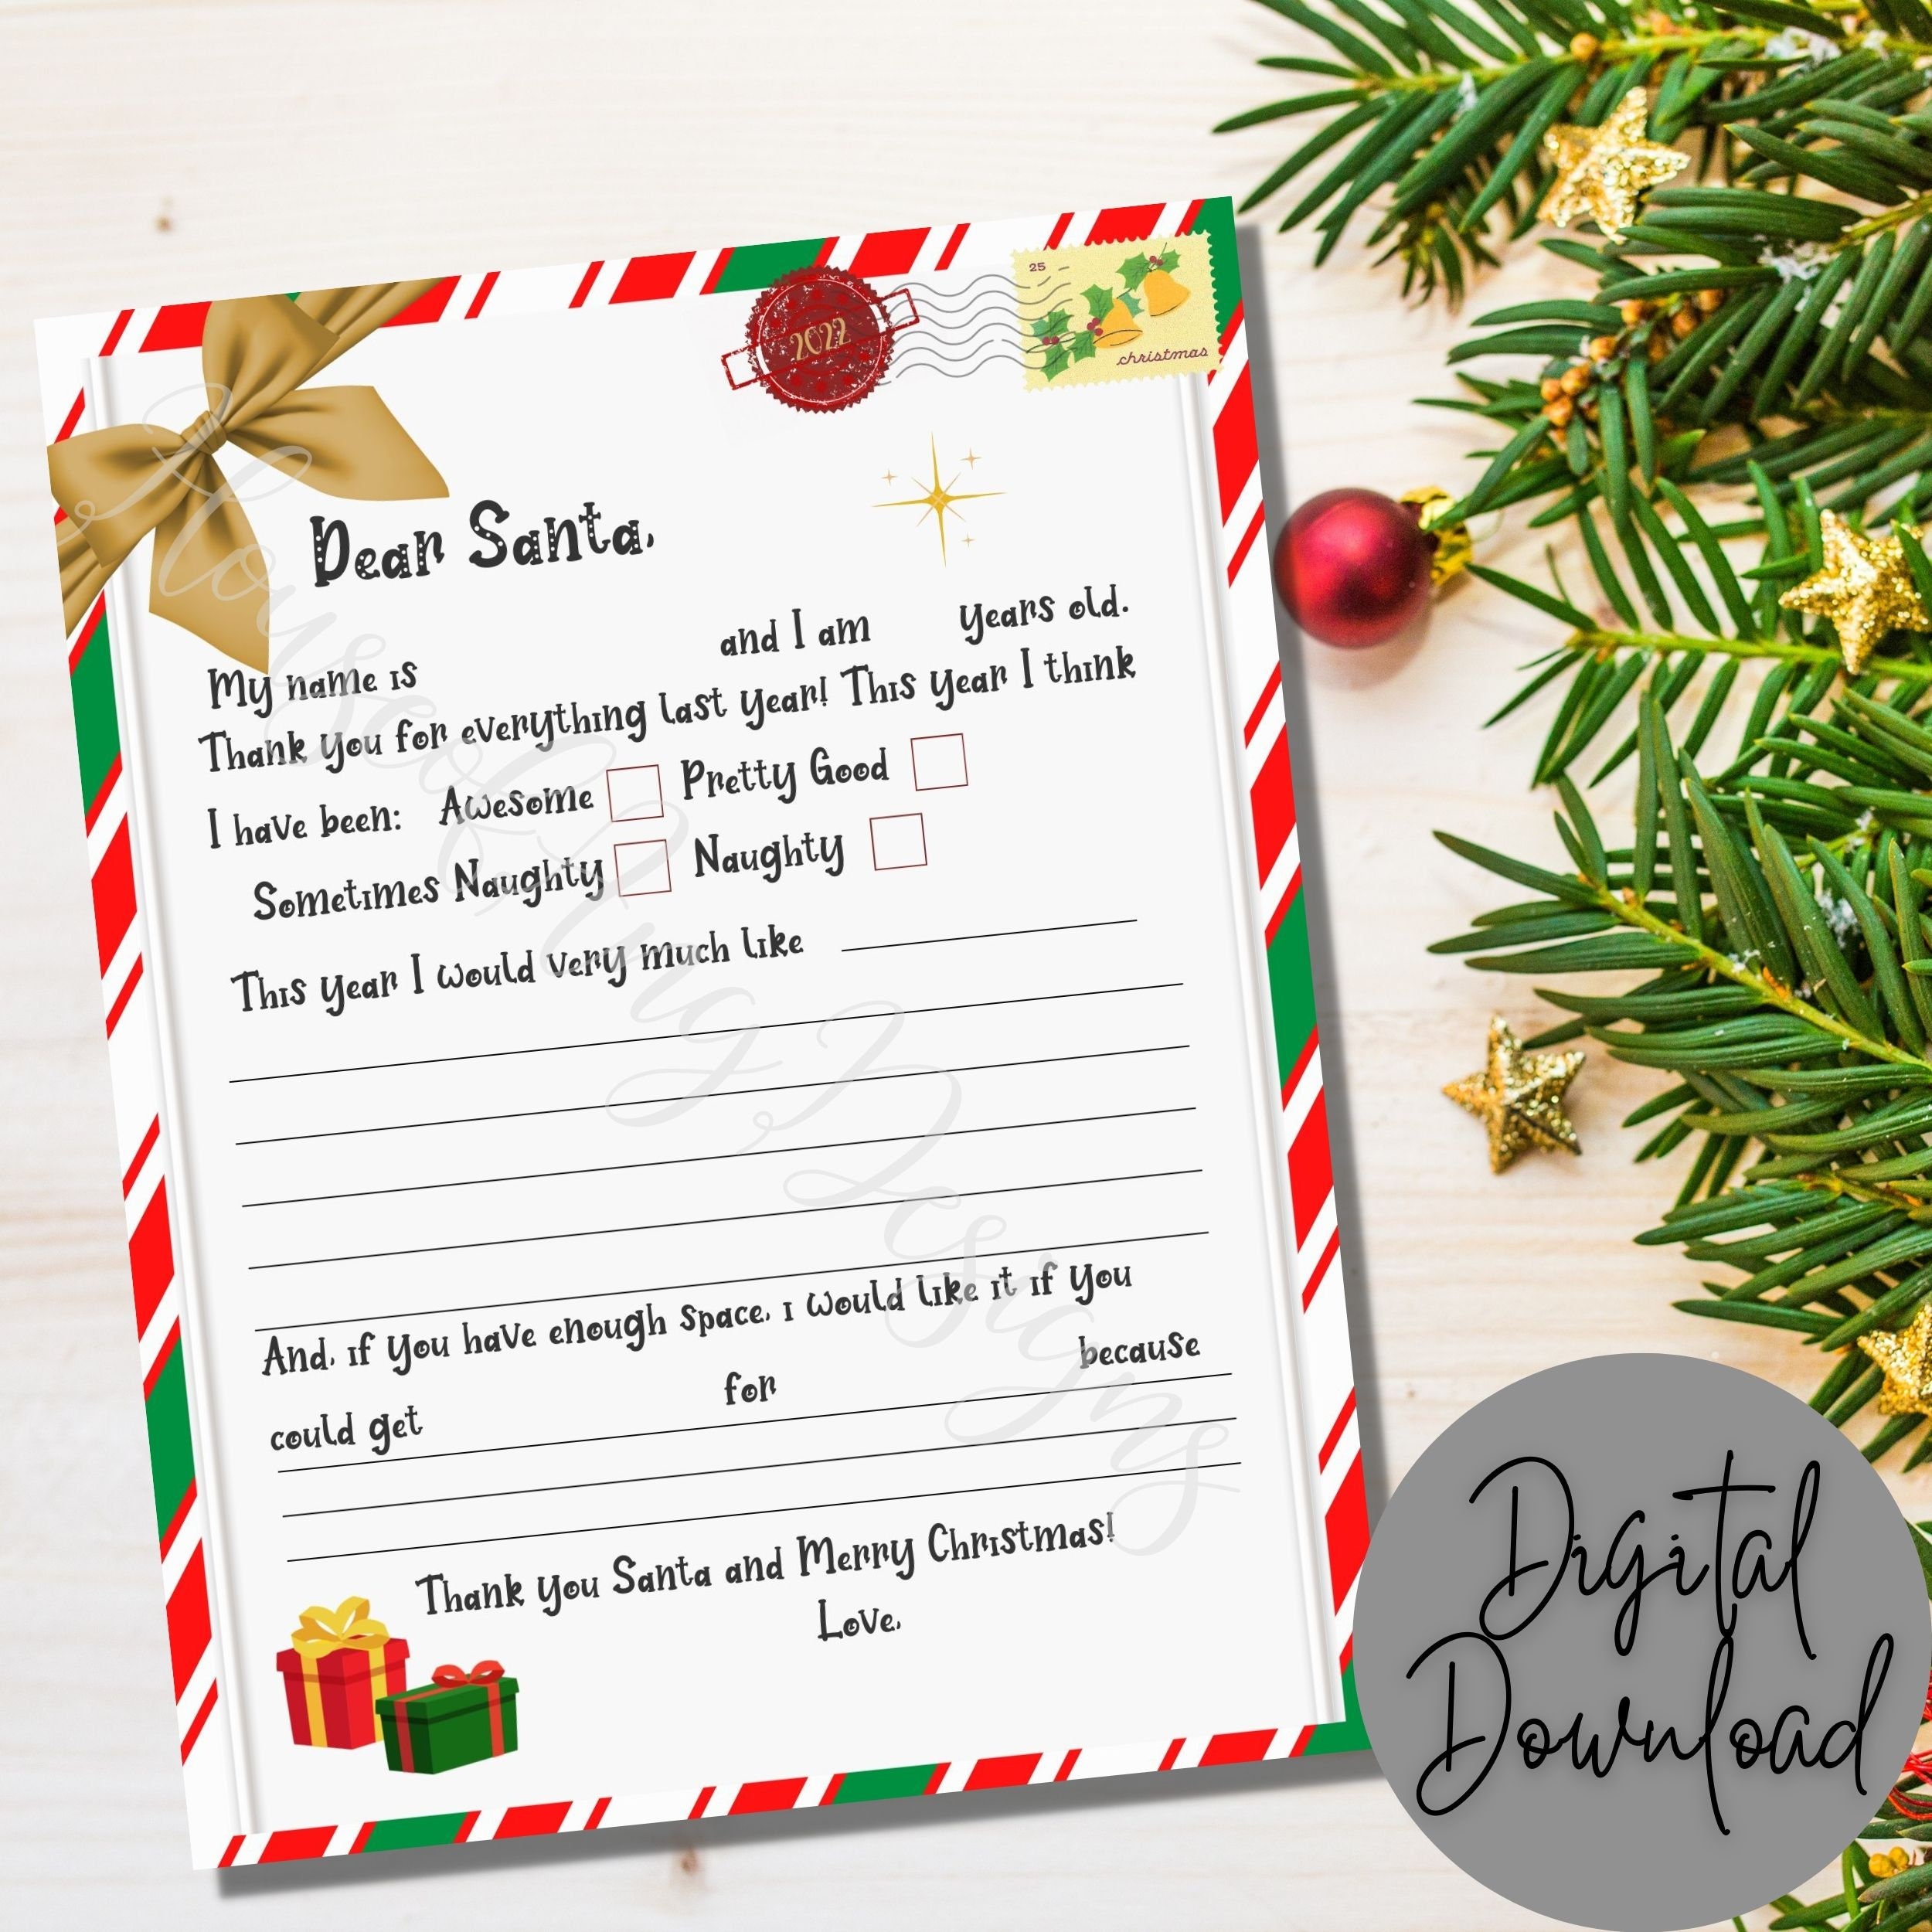 2022
25
christmas
Dear Santa,
My name is and I am years old.
Thank you for everything last year! This year I think
I have been: Awesome Pretty Good
Sometimes Naughty Naughty
This year I would very much like
And, if you have enough space, i would like it if you
could get for because
Thank you Santa and Merry Christmas!
Love,
HouseofAng Designs
Digital
Download